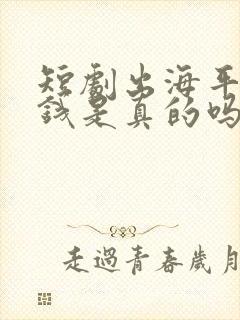 短劇出海平
錢是真的嗎
走過青春歲月